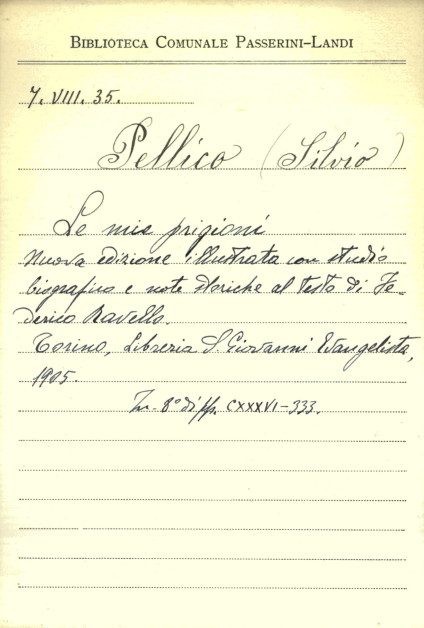 BIBLIOTECA COMUNALE PASSERINI-LANDI
7. VIII. 35.
Pellico (Silvio)
Le mie prigioni
Nuova edizione illustrata con studio
biografico e note storiche al testo di Fe-
derico Ravello.
Torino, Libreria S. Giovanni Evangelista,
1905.
In-8° di pp. CXXXVI-333.